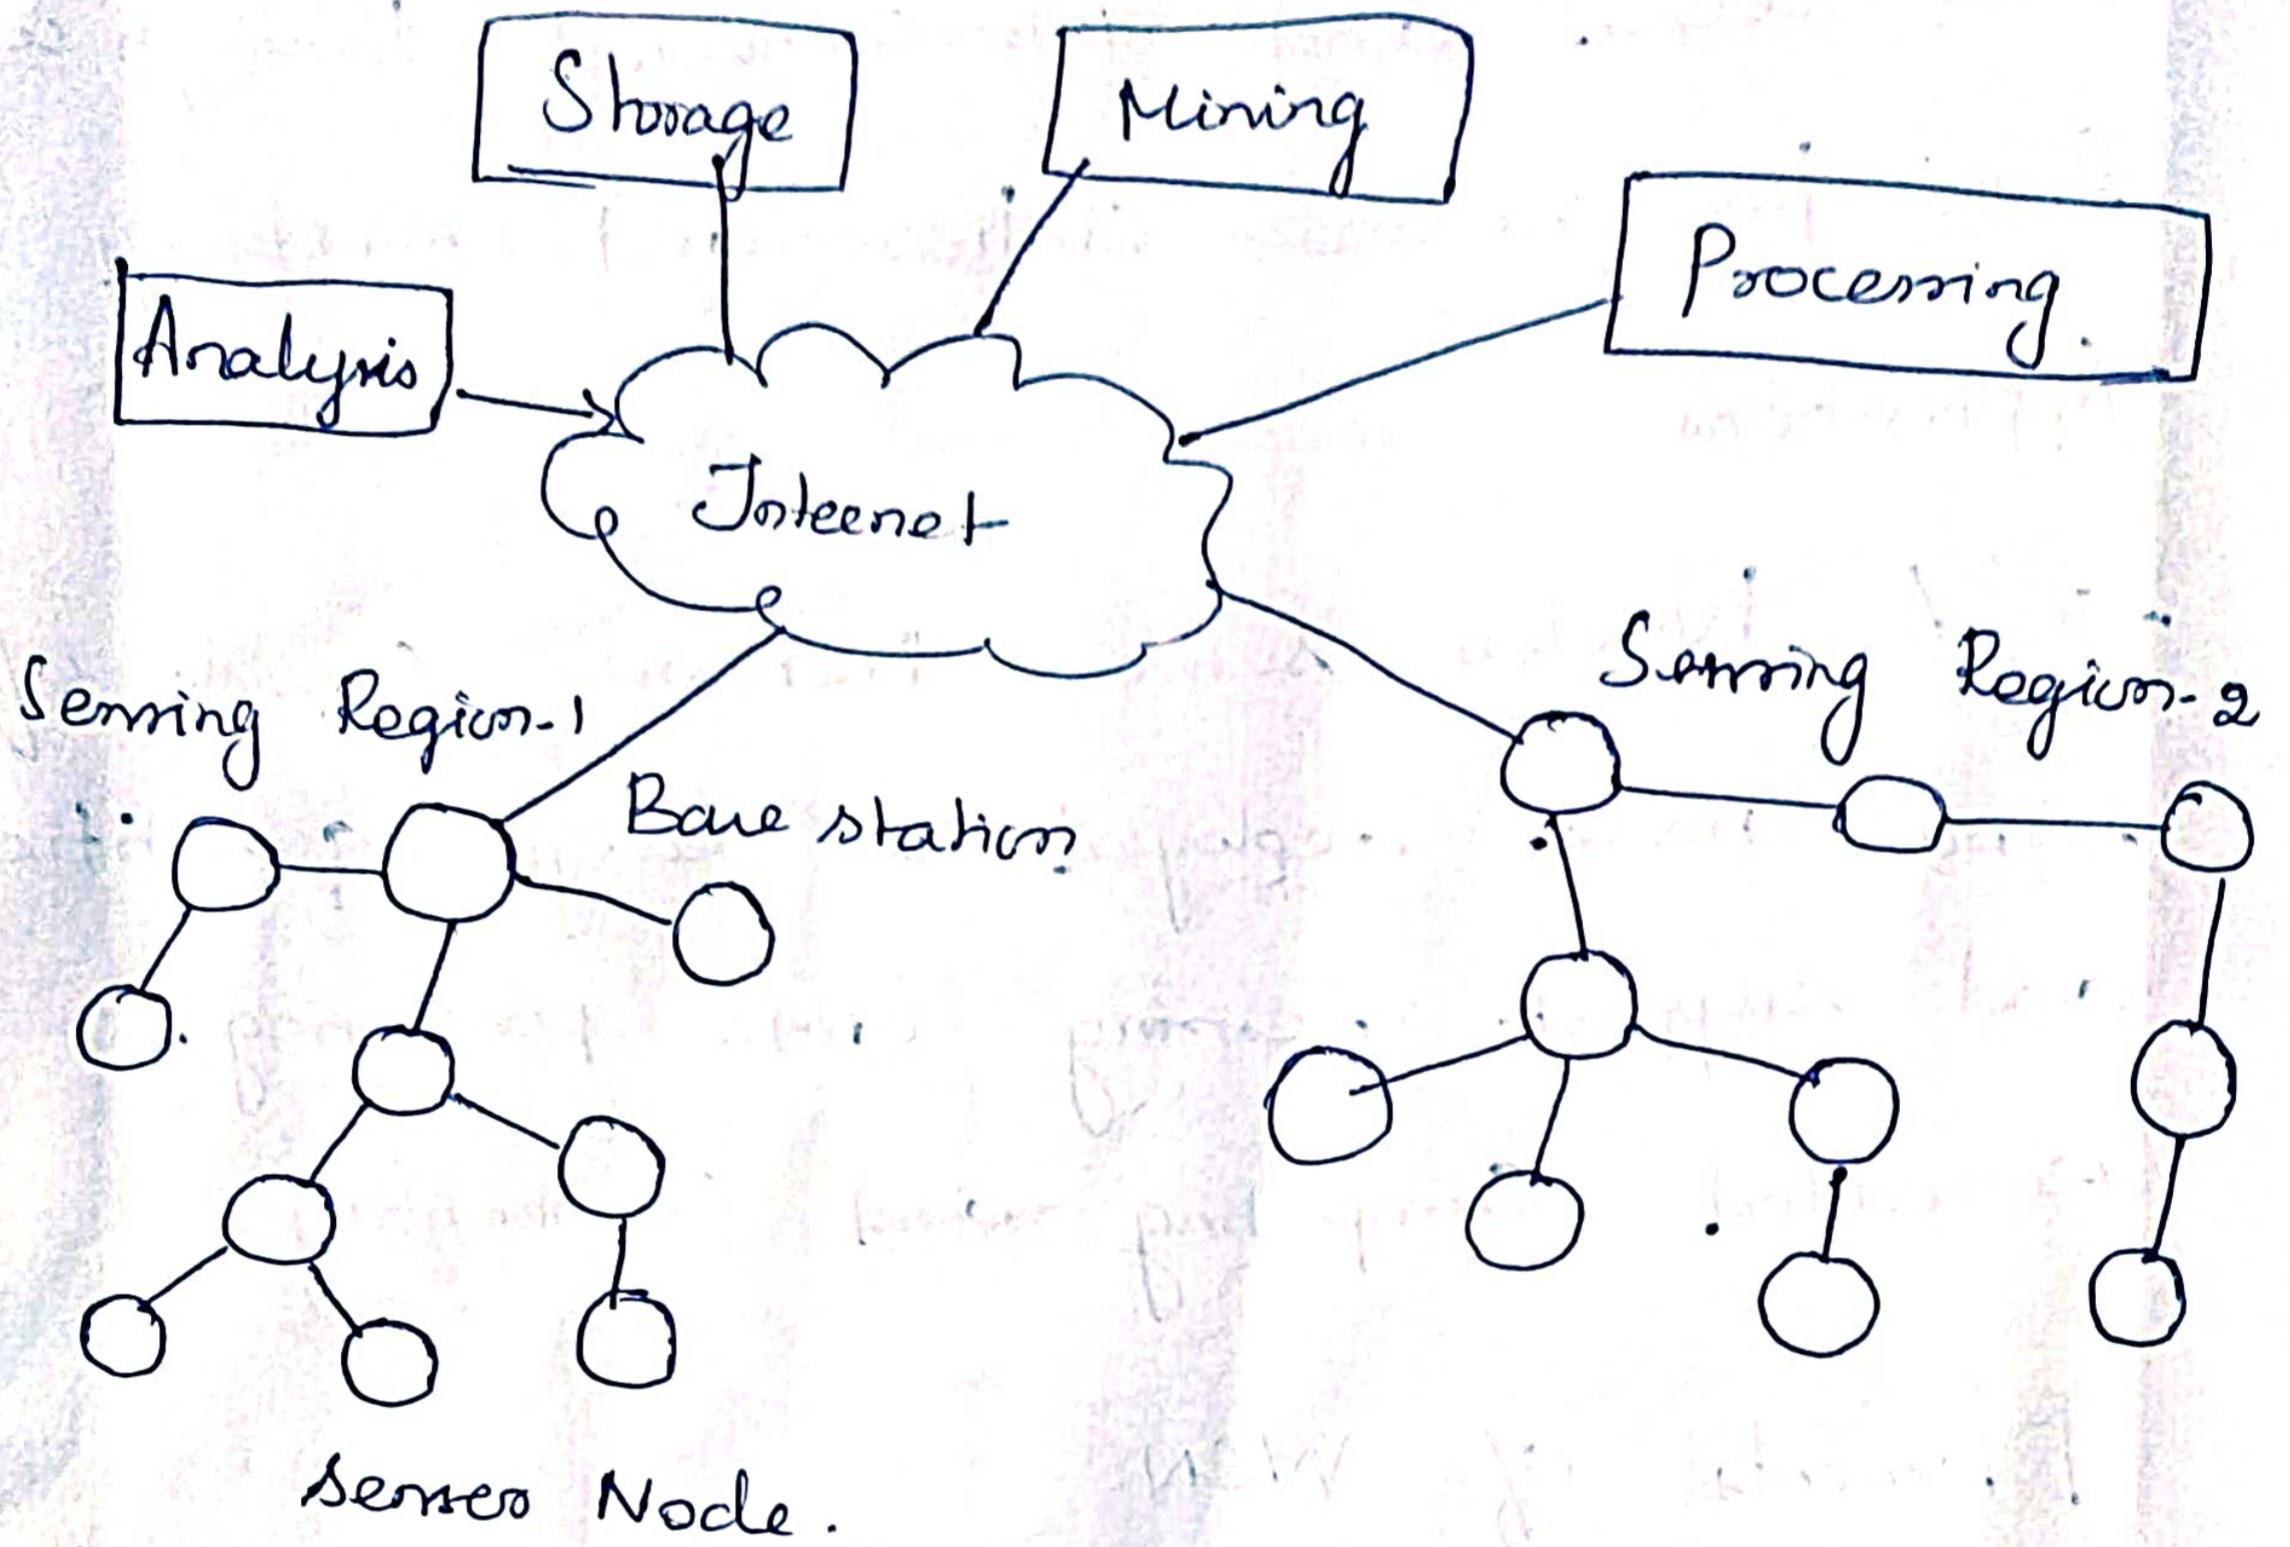 Storage
Mining
Processing.
Analysis
Internet
Sensing Region-2
Sensing Region-1
Base station
Sensor Node.